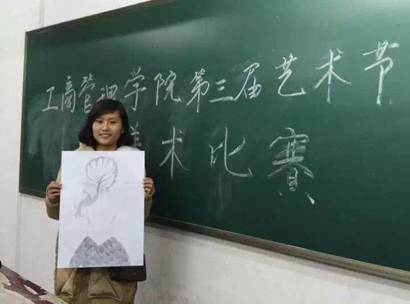 工商管理学院第三届艺术节
美术比赛